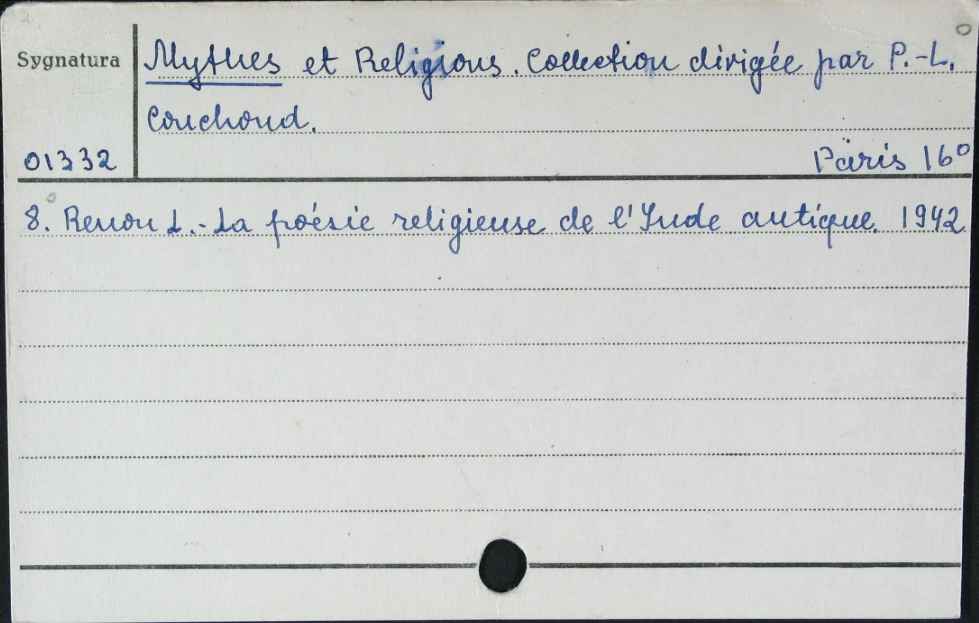 Sygnatura
Mythes et Religions. Collection dirigée par P.-L.
Couchoud.
01332
Paris 16°
8. Renou L.-La poésie religieuse de l'Inde antique. 1942